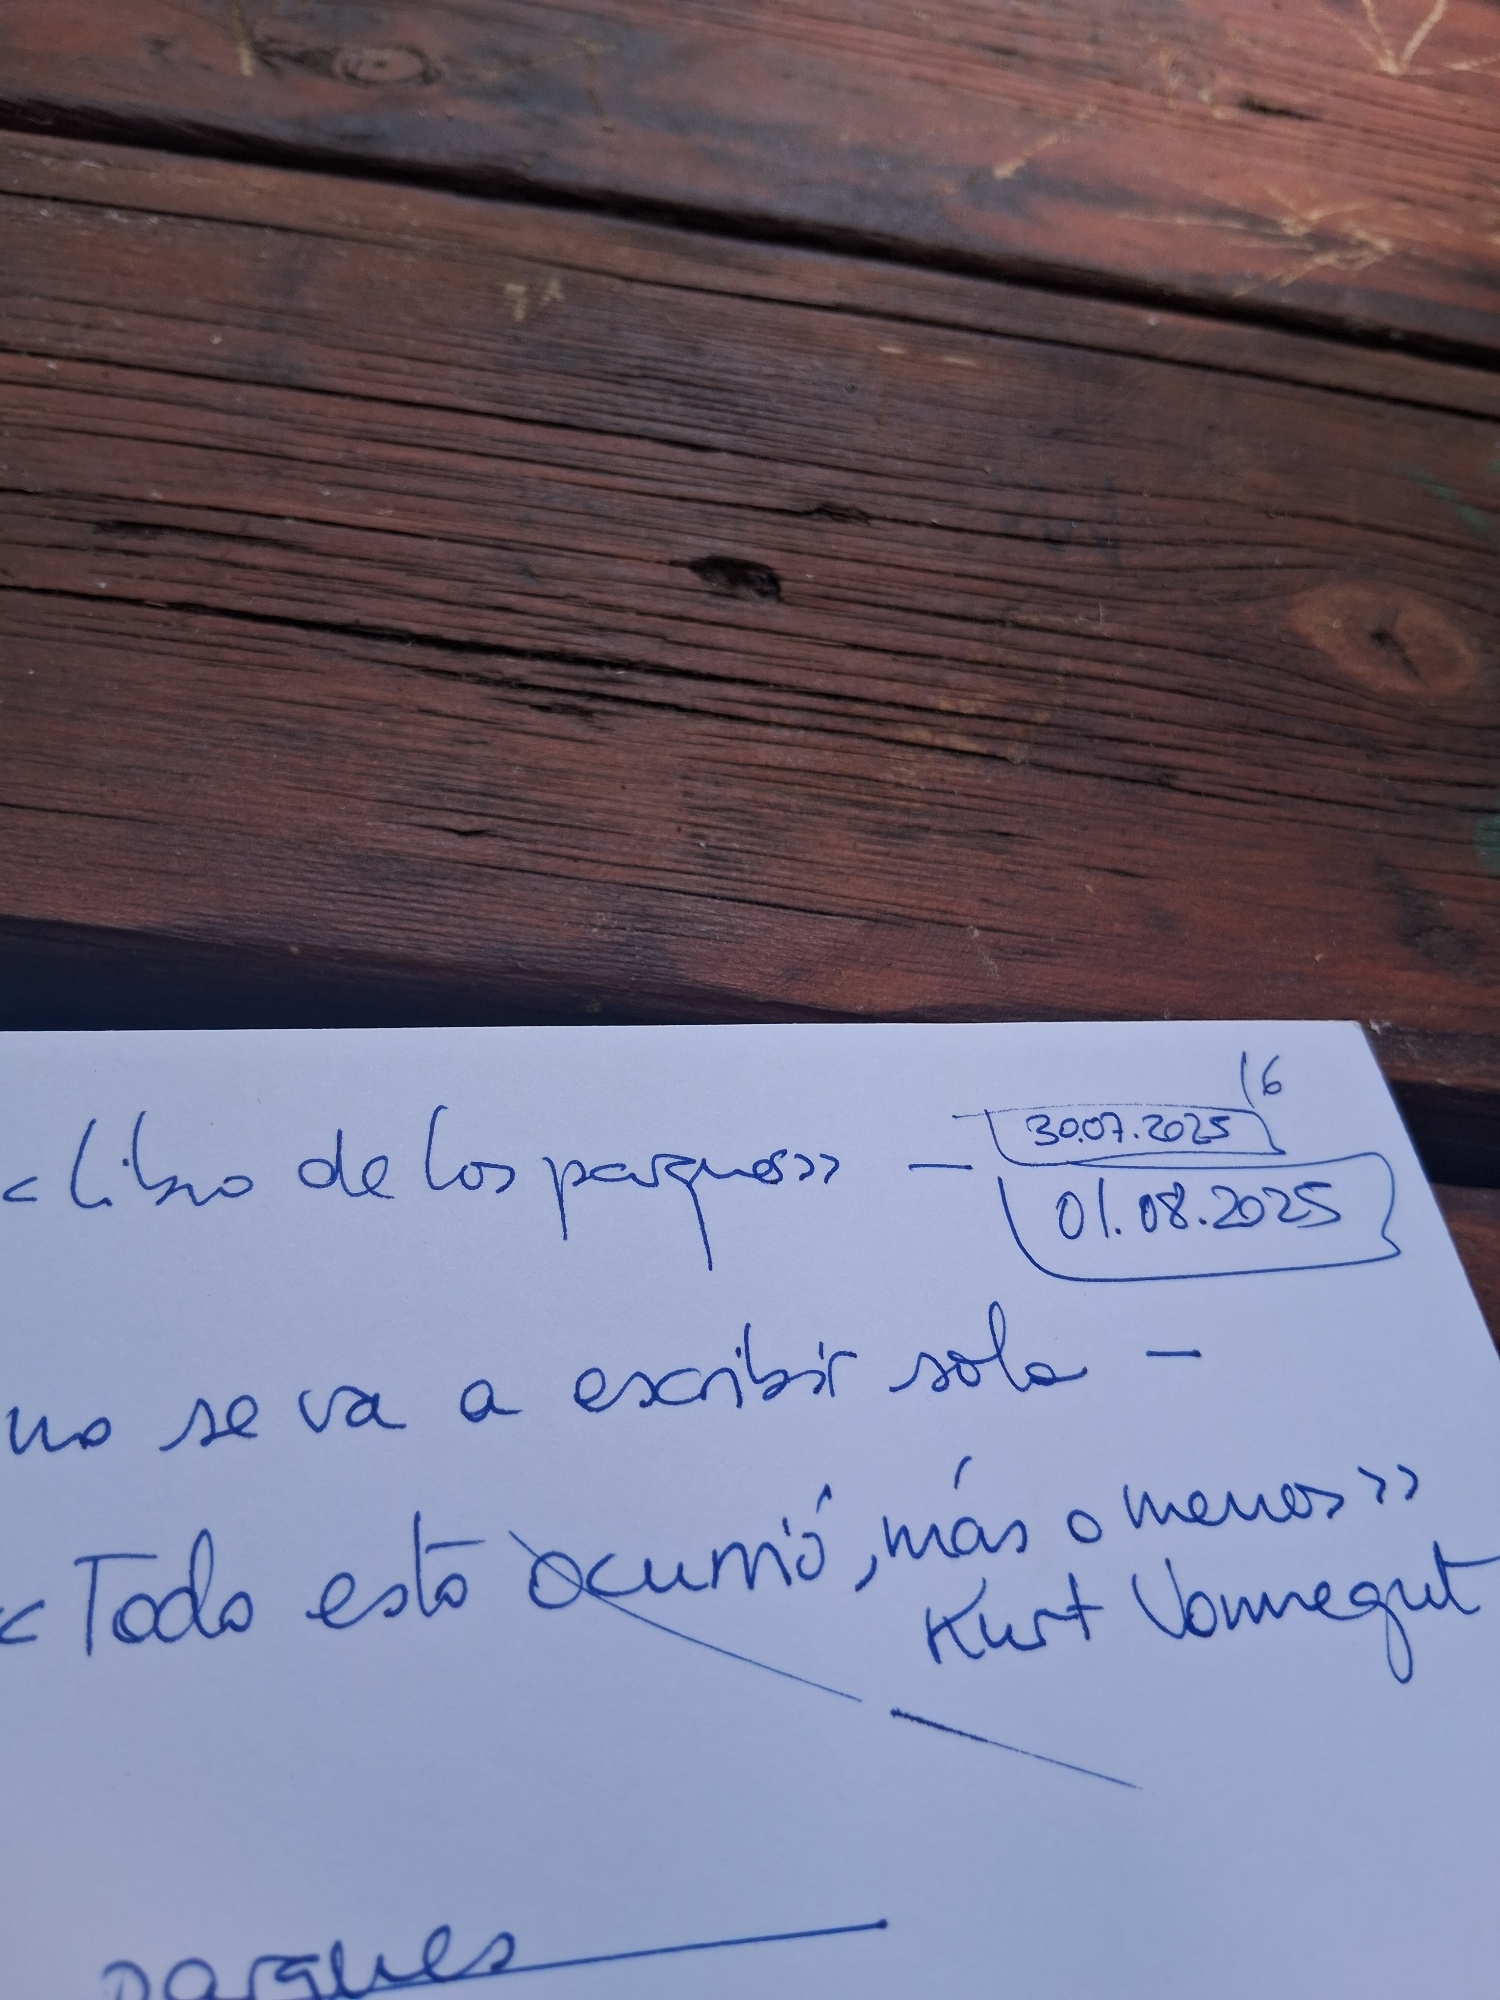 16
30.07.2025
<Libro de los parques>> —
01.08.2025
no se va a escribir solo —
<Todo esto ocurrió, más o menos>>
Kurt Vonnegut
parques